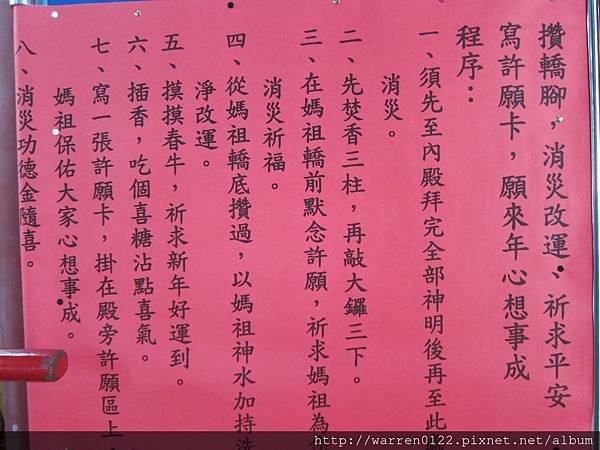 攢轎腳，消災改運、祈求平安
寫許願卡，願來年心想事成
程序：
一、須先至內殿拜完全部神明後再至此
消災。
二、先焚香三柱，再敲大鑼三下。
三、在媽祖轎前默念許願，祈求媽祖為
消災祈福。
四、從媽祖轎底攢過，以媽祖神水加持
淨改運。
五、摸摸春牛，祈求新年好運到。
六、插香，吃個喜糖沾點喜氣。
七、寫一張許願卡，掛在殿旁許願區上
媽祖保佑大家心想事成。
八、消災功德金隨喜。
http://warren0122.pixnet.net/album